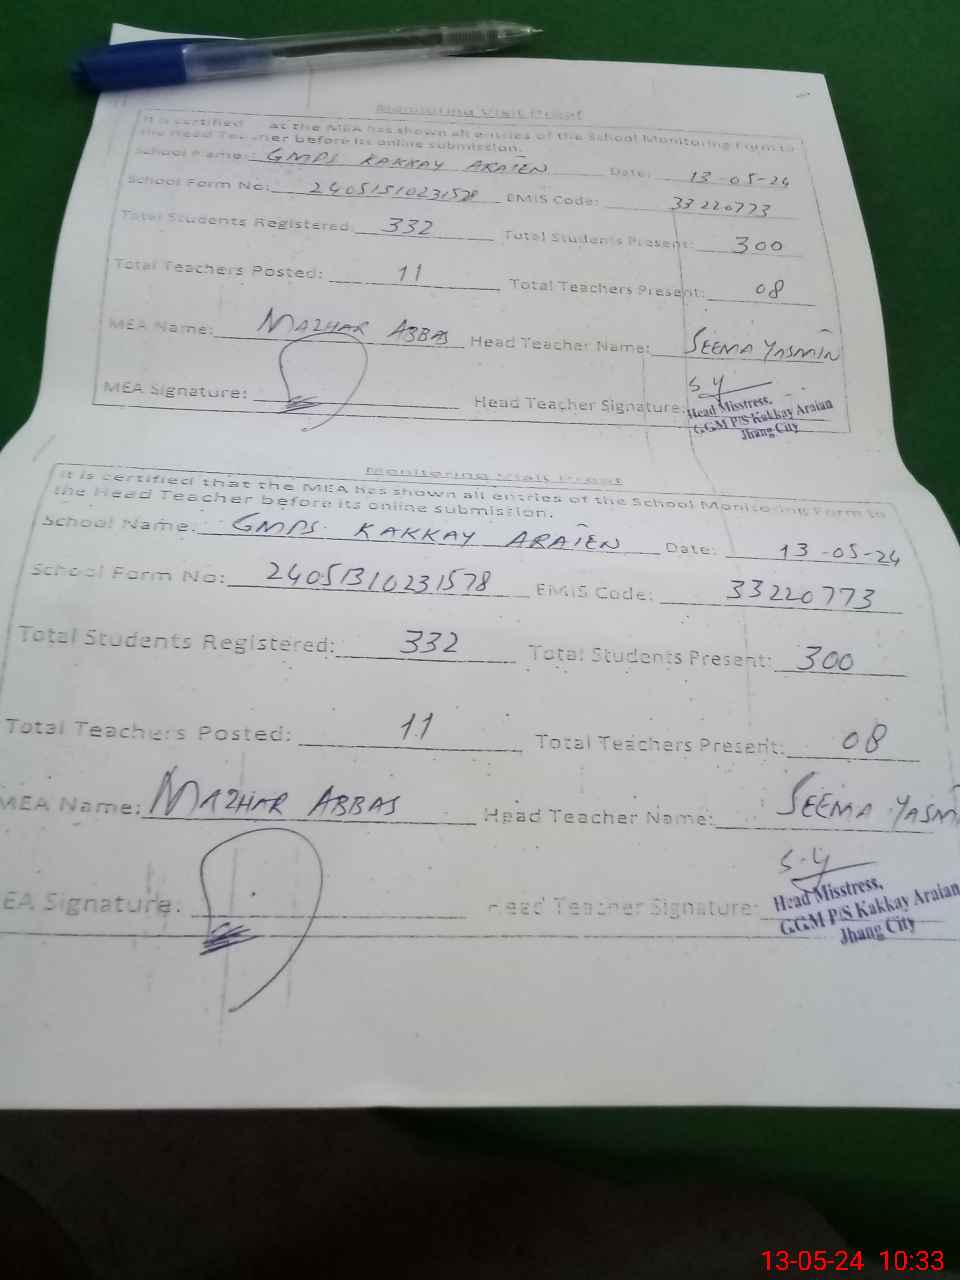 Monitoring Visit Proof
It is certified at the MEA has shown all entries of the School Monitoring Form to
the Head Teacher before its online submission.
School Name: GMPS KAKKAY ARAIEN Date: 13-05-24
School Form No: EMIS Code: 33220773
Total Students Registered: 332 Total Students Present: 300
Total Teachers Posted: 11 Total Teachers Present: 08
MEA Name: MAZHAR ABBAS Head Teacher Name: SEEMA YASMIN
MEA Signature: Head Teacher Signature: S.Y
Head Misstress,
G.G.M P/S Kakkay Araian
Jhang City
Monitoring Visit Proof
It is certified that the MEA has shown all entries of the School Monitoring Form to
the Head Teacher before its online submission.
School Name: GMPS KAKKAY ARAIEN Date: 13-05-24
School Form No: 24051310231578 EMIS Code: 33220773
Total Students Registered: 332 Total Students Present: 300
Total Teachers Posted: 11 Total Teachers Present: 08
MEA Name: MAZHAR ABBAS Head Teacher Name: SEEMA YASM
EA Signature: Head Teacher Signature: S.Y
Head Misstress,
G.G.M P/S Kakkay Araian
Jhang City
13-05-24 10:33